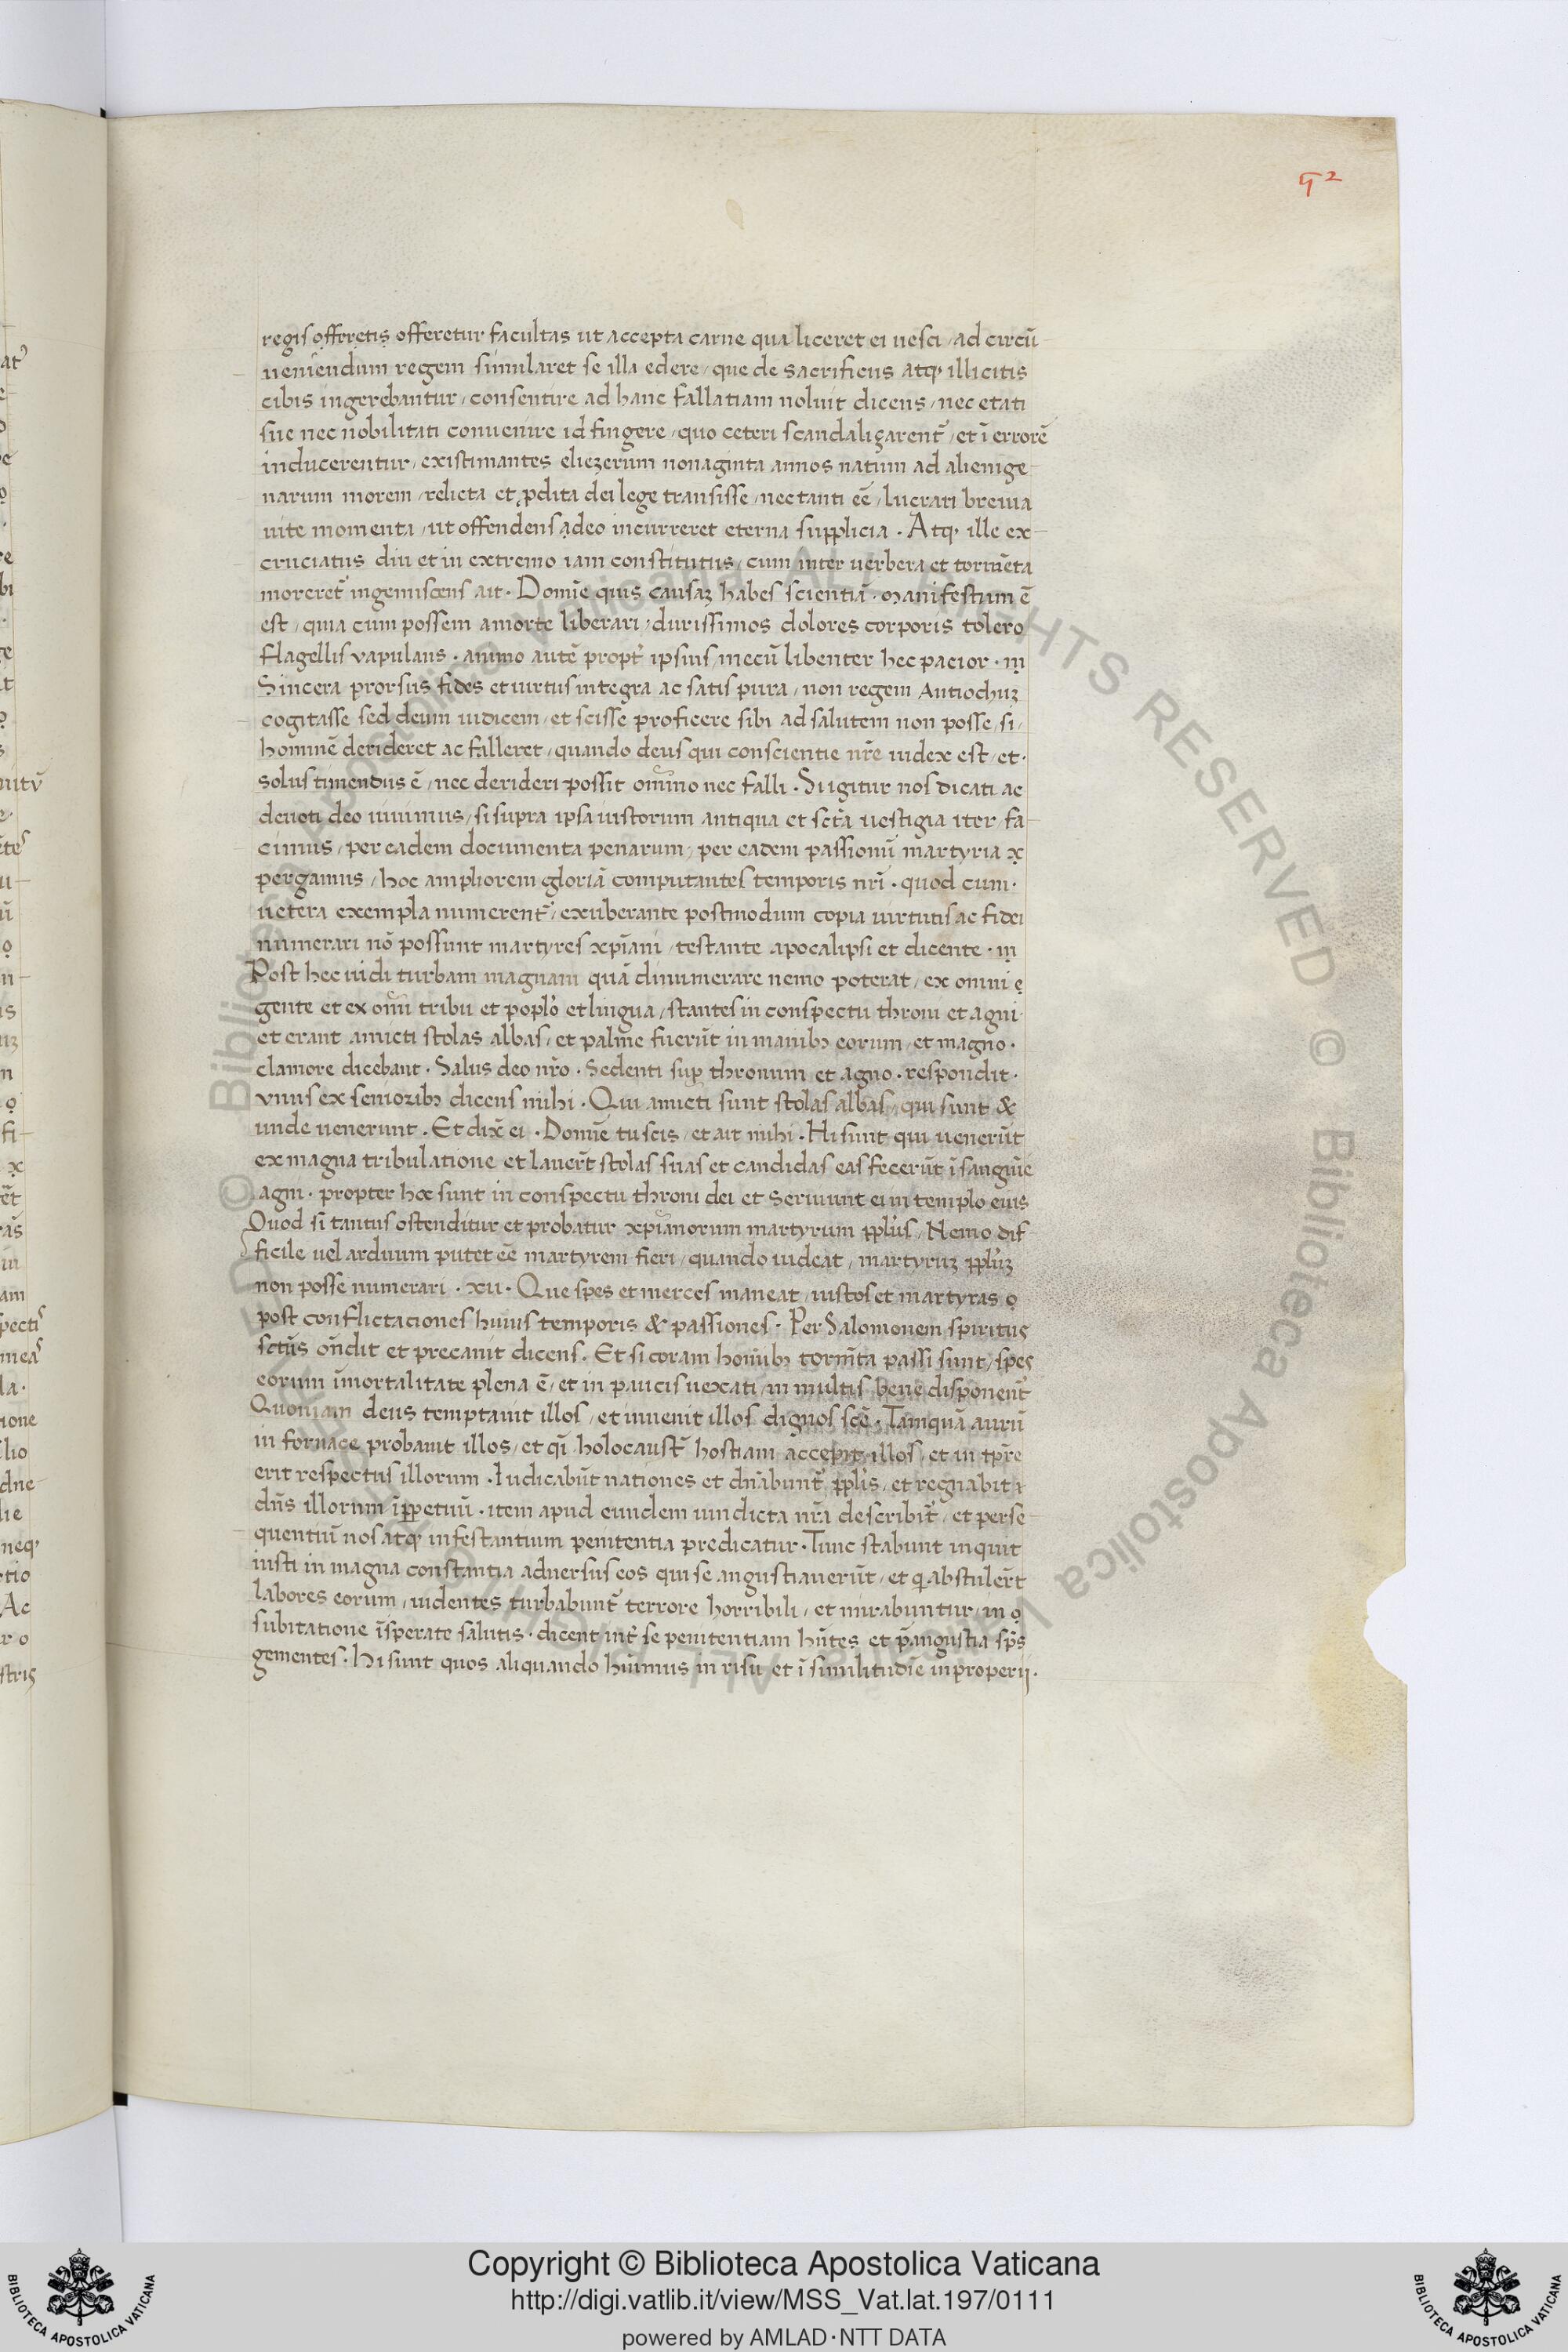 52
regis offeretis offeretur facultas ut accepta carne qua liceret ei uesci / ad circū
ueniendum regem simularet se illa edere / que de sacrificiis atq; illicitis
cibis ingerebantur / consentire ad hanc fallatiam noluit dicens / nec etati
sue nec nobilitati conuenire id fingere / quo ceteri scandaliçarent᷑ / et ī errorē
inducerentur / existimantes eliezerum nonaginta annos natum ad alienige
narum morem / relicta et ꝑdita dei lege transisse / nec tanti eē / lucrari breuia
uite momenta / ut offendens adeo incurreret eterna supplicia . Atq; ille ex
cruciatus diu et in extremo iam constitutus / cum inter uerbera et tormēta
moreret᷑ ingemiscens ait . Domīe quis causaꝫ habes scientiā . manifestum ē
est / quia cum possem amorte liberari / durissimos dolores corporis tolero
flagellis vapulans . animo autē propt᷑ ipsius mecū libenter hec pacior . m
Sincera prorsus fides et uirtus integra ac satis pura / non regem Antiochuꝫ
cogitasse sed deum iudicem / et scisse proficere sibi ad salutem non posse / si /
hominē derideret ac falleret / quando deus qui conscientie nr̄e iudex est / et .
solus timendus ē / nec derideri possit omīno nec falli . Si igitur nos dicati ac
deuoti deo uiuimus / si supra ipsa iustorum antiqua et sc̄tā uestigia iter / fa
cimus / per eadem documenta penarum / per eadem passionū martyria x
pergamus / hoc ampliorem gloriā computantes temporis nr̄i . quod cum .
uetera exempla numerent᷑ / exuberante postmodum copia uirtutis ac fidei
numerari nō possunt martyres xp̄iani / testante apocalipsi et dicente . m
Post hec uidi turbam magnam quā dinumerare nemo poterat / ex omni e
gente et ex om̄i tribu et poplo et lingua / stantes in conspectu throni et agni
et erant amicti stolas albas / et palme fuerūt in manibꝫ eorum / et magno .
clamore dicebant . Salus deo nr̄o . Sedenti suꝑ thronum et agno . respondit .
vnus ex senioribꝫ dicens mihi . Qui amicti sunt stolas albas / qui sunt &
unde uenerunt . Et dix̄ ei . Domīe tu scis / et ait mihi . Hi sunt qui uenerūt
ex magna tribulatione et lauer̄t stolas suas et candidas eas fecerūt ī sanguīe
agni . propter hoc sunt in conspectu throni dei et seruiunt ei in templo eius
Quod si tantus ostenditur et probatur xpianorum martyrum ppl̄us / Nemo dif
ficile uel arduum putet eē martyrem fieri / quando uideat / martyruꝫ ppl̄uꝫ
non posse numerari . xii . Que spes et merces maneat / iustos et martyras o
post conflictaciones huius temporis & passiones . Per Salomonem spiritus
sctūs oñdit et precanit dicens . Et si coram homībꝫ tormīta passi sunt / spes
eorum īmortalitate plena ē / et in paucis uexati / in multis bene disponent᷑
Quoniam deus temptauit illos / et inuenit illos dignos scē . Tamquā aurū
in fornace probauit illos / et q̄i holocaust̄ hostiam accepit illos / et in tp̄re
erit respectus illorum . Iudicabūt nationes et dn̄abunt᷑ ppl̄is / et regnabit
dn̄s illorum īꝑpetuū . item apud eundem uindicta nr̄a describit᷑ / et perse
quentiū nos atq; infestantium penitentia predicatur . Tunc stabunt inquit
iusti in magna constantia aduersus eos qui se angustiauerūt / et q abstuler̄t
labores eorum / uidentes turbabunt᷑ terrore horribili / et mirabuntur / in o
subitatione īsperate salutis . dicent int᷑ se penitentiam hn̄tes et p̄ angustia sp̄s
gementes . Hi sunt quos aliquando hūimus in risu et ī similitudīe inproperij .
Copyright © Biblioteca Apostolica Vaticana
http://digi.vatlib.it/view/MSS_Vat.lat.197/0111
powered by AMLAD·NTT DATA